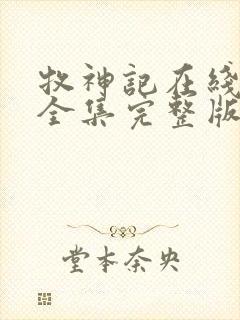 牧神記在綫
全集完整版
堂本奈央